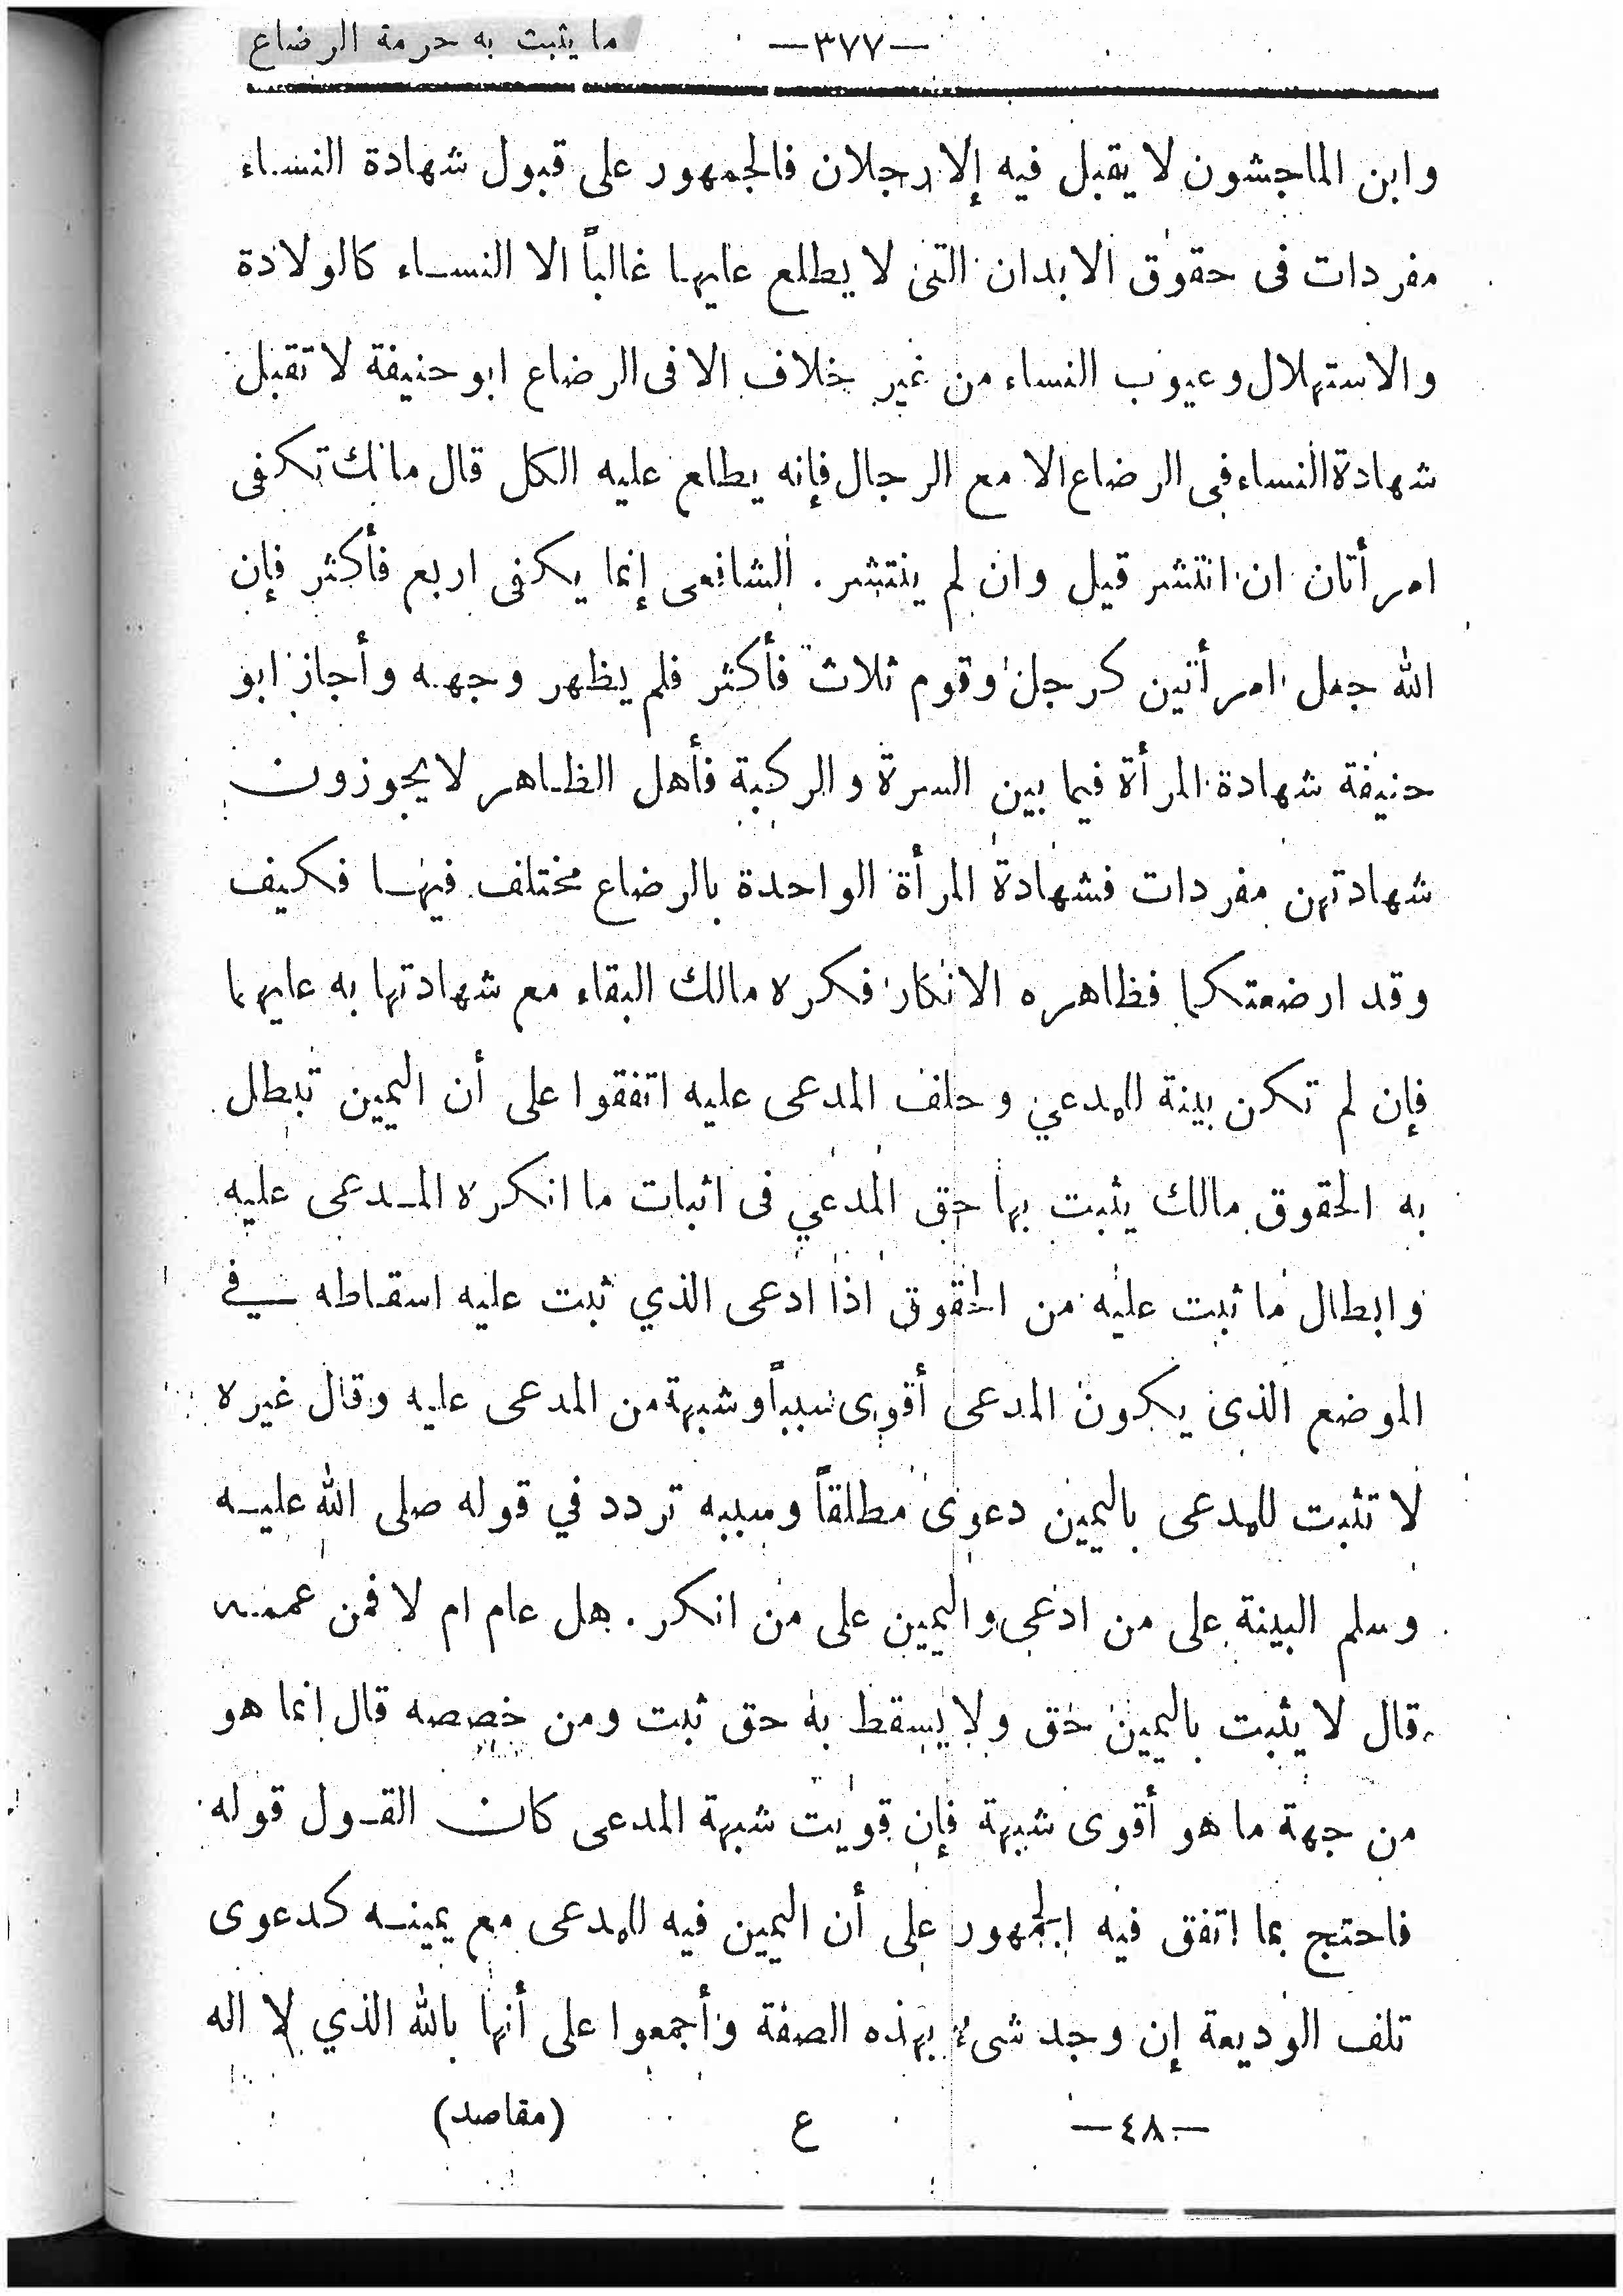 ما يثبت به حرمة الرضاع —٣٧٧—
وابن الماجشون لا يقبل فيه إلا رجلان فالجمهور على قبول شهادة النساء
مفردات فى حقوق الابدان التى لا يطلع عليها غالباً الا النساء كالولادة
والاستهلال وعيوب النساء من غير خلاف الا فى الرضاع ابو حنيفة لا تقبل
شهادة النساء فى الرضاع الا مع الرجال فإنه يطلع عليه الكل قال مالك تكفى
امرأتان ان انتشر قيل وان لم ينتشر . الشافعى إنما يكفى اربع فأكثر فإن
الله جعل امرأتين كرجل وقوم ثلاث فأكثر فلم يظهر وجهه وأجاز ابو
حنيفة شهادة المرأة فيما بين السرة والركبة فأهل الظاهر لا يجوزون
شهادتهن مفردات فشهادة المرأة الواحدة بالرضاع مختلف فيها فكيف
وقد ارضعتكما فظاهره الانكار فكره مالك البقاء مع شهادتها به عليهما
فإن لم تكن بينة للمدعي وحلف المدعى عليه اتفقوا على أن اليمين تبطل
به الحقوق مالك يثبت بها حق المدعي فى اثبات ما انكره المدعى عليه
وابطال ما ثبت عليه من الحقوق اذا ادعى الذي ثبت عليه اسقاطه في
الموضع الذى يكون المدعى أقوى سبباً وشبهة من المدعى عليه وقال غيره
لا تثبت للمدعى باليمين دعوى مطلقاً وسببه تردد في قوله صلى الله عليه
وسلم البينة على من ادعى واليمين على من انكر . هل عام ام لا فمن عممه
قال لا يثبت باليمين حق ولا يسقط به حق ثبت ومن خصصه قال انما هو
من جهة ما هو أقوى شبهة فإن قويت شبهة المدعى كان القول قوله
فاحتج بما اتفق فيه الجمهور على أن اليمين فيه للمدعى مع يمينه كدعوى
تلف الوديعة إن وجد شىء بهذه الصفة وأجمعوا على أنها بالله الذي لا اله
—٤٨— ع (مقاصد)